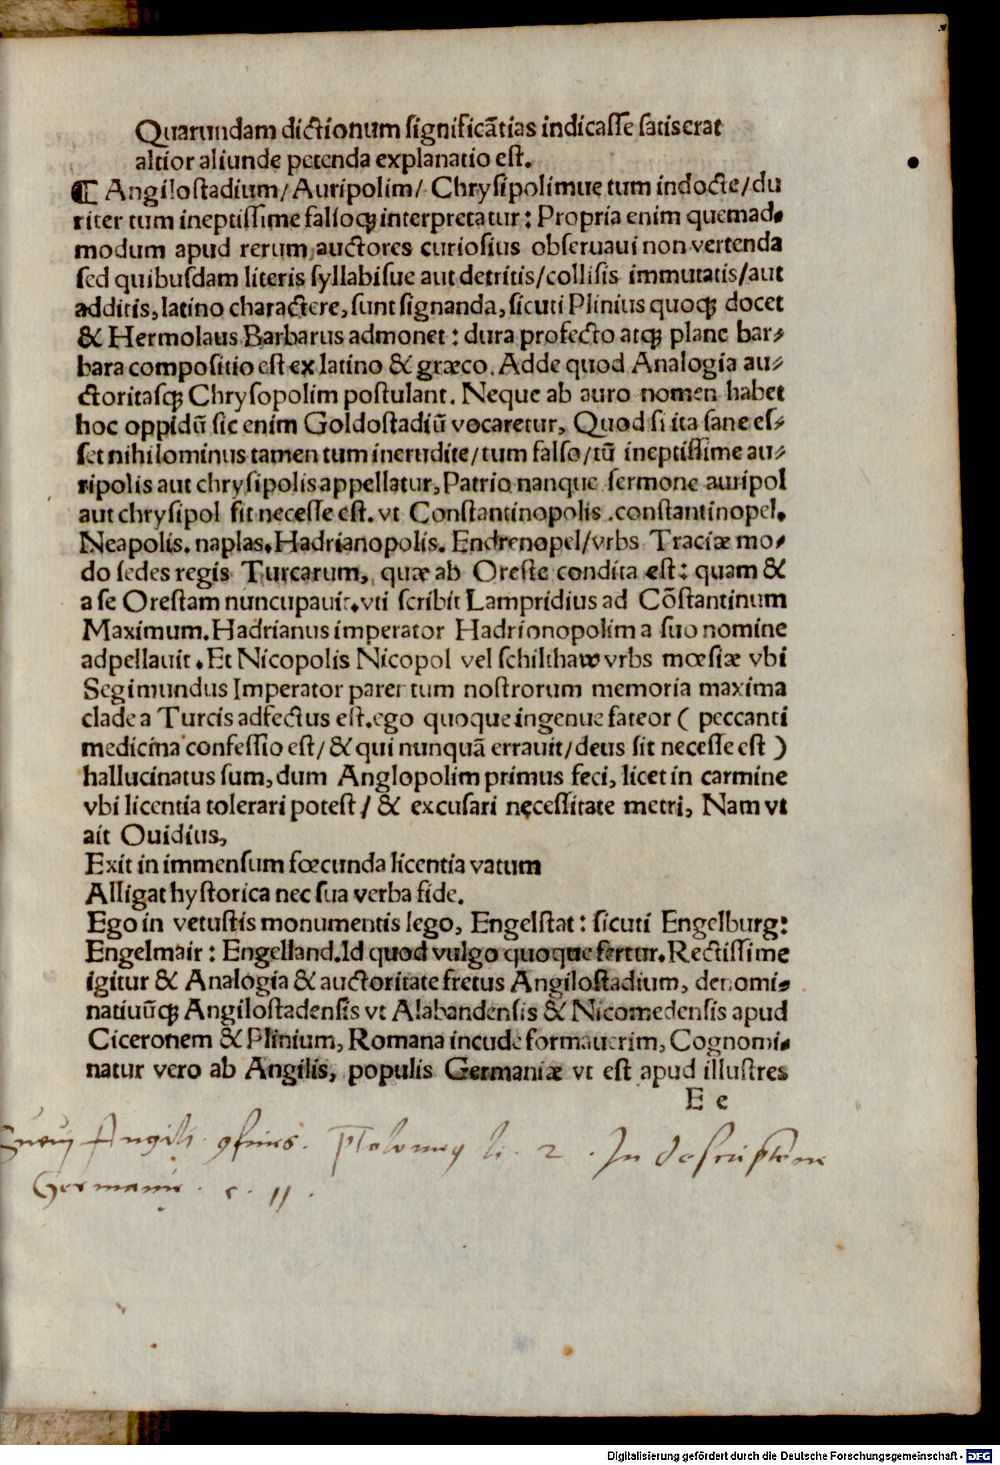 Quarundam dictionum significãtias indicasse satis erat
altior aliunde petenda explanatio est.
¶ Angilostadium/Auripolim/ Chrysipolimue tum indocte/du
riter tum ineptissime falsoqꝫ interpretatur: Propria enim quemad-
modum apud rerum auctores curiosius obseruaui non vertenda
sed quibusdam literis syllabisue aut detritis/collisis immutatis/aut
additis, latino charactere, sunt signanda, sicuti Plinius quoqꝫ docet
& Hermolaus Barbarus admonet: dura profecto atqꝫ plane bar-
bara compositio est ex latino & græco. Adde quod Analogia au-
ctoritasqꝫ Chrysopolim postulant. Neque ab auro nomen habet
hoc oppidũ sic enim Goldostadiũ vocaretur, Quod si ita sane es-
set nihilominus tamen tum inerudite/tum falso/tũ ineptissime au-
ripolis aut chrysipolis appellatur, Patrio nanque sermone auripol
aut chrysipol fit necesse est. vt Constantinopolis .constantinopel.
Neapolis. naplas. Hadrianopolis. Endrenopel/vrbs Traciæ mo-
do sedes regis Turcarum, quæ ab Oreste condita est: quam &
a se Orestam nuncupauit. vti scribit Lampridius ad Cõstantinum
Maximum. Hadrianus imperator Hadrionopolim a suo nomine
adpellauit. Et Nicopolis Nicopol vel schilthaw vrbs mœsiæ vbi
Segimundus Imperator parer tum nostrorum memoria maxima
clade a Turcis adfectus est. ego quoque ingenue fateor ( peccanti
medicina confessio est/ & qui nunquã errauit/deus sit necesse est )
hallucinatus sum, dum Anglopolim primus feci, licet in carmine
vbi licentia tolerari potest/ & excusari nęcessitate metri, Nam vt
ait Ouidius,
Exit in immensum fœcunda licentia vatum
Alligat hystorica nec sua verba fide.
Ego in vetustis monumentis lego, Engelstat: sicuti Engelburg:
Engelmair: Engelland. Id quod vulgo quoque fertur. Rectissime
igitur & Analogia & auctoritate fretus Angilostadium, denomi-
natiuũqꝫ Angilostadensis vt Alabandensis & Nicomedensis apud
Ciceronem & Plinium, Romana incude formauerim, Cognomi-
natur vero ab Angilis, populis Germaniæ vt est apud illustres
E e
Sueui Angili. ꝯfines. Ptolomeꝰ li. 2. In descriptione
Germanie. c. 11.
Digitalisierung gefördert durch die Deutsche Forschungsgemeinschaft - DFG